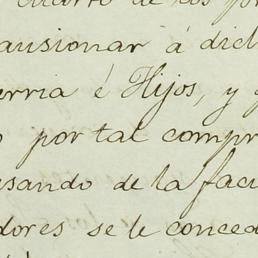 cuarto de los por
ausionar á dich
erria é Hijos, y q
o por tal compr
usando de la facu
dores se le conced